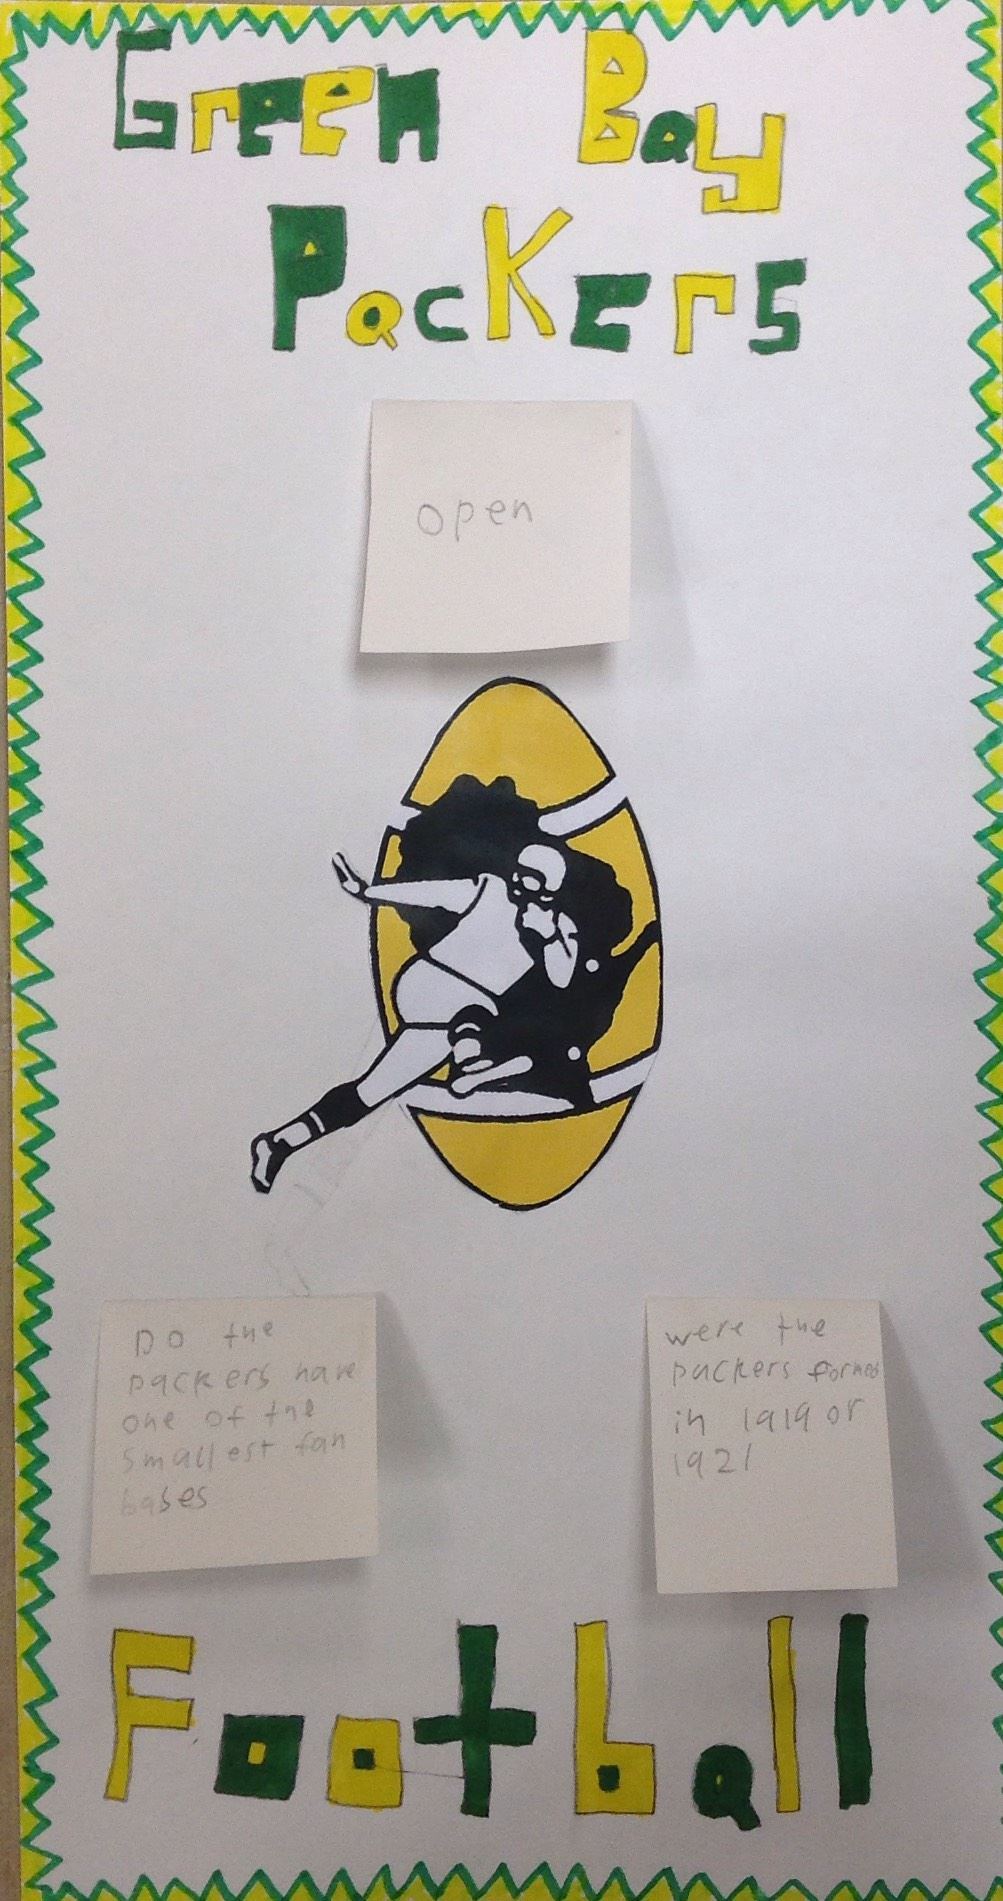 Green Bay
Packers
open
Do the
packers have
one of the
smallest fan
bases
were the
packers formed
in 1919 or
1921
Football